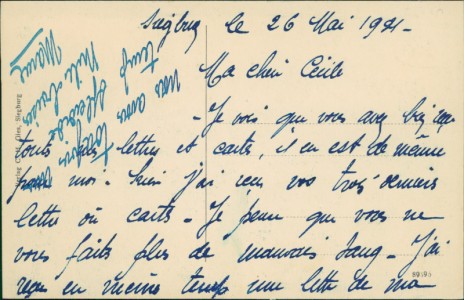 Siegburg le 26 Mai 1921-
Ma chère Cécile
- Je vois que vous avez
toutes mes lettres et cartes, il en est de même
pour moi - j'ai reçu vos trois dernières
lettres ou cartes - Je pense que vous ne
vous faites plus de mauvais sang - J'ai
reçu en même temps une lettre de ma
nous avons
temps
splendide
Mille baisers
Siegburg